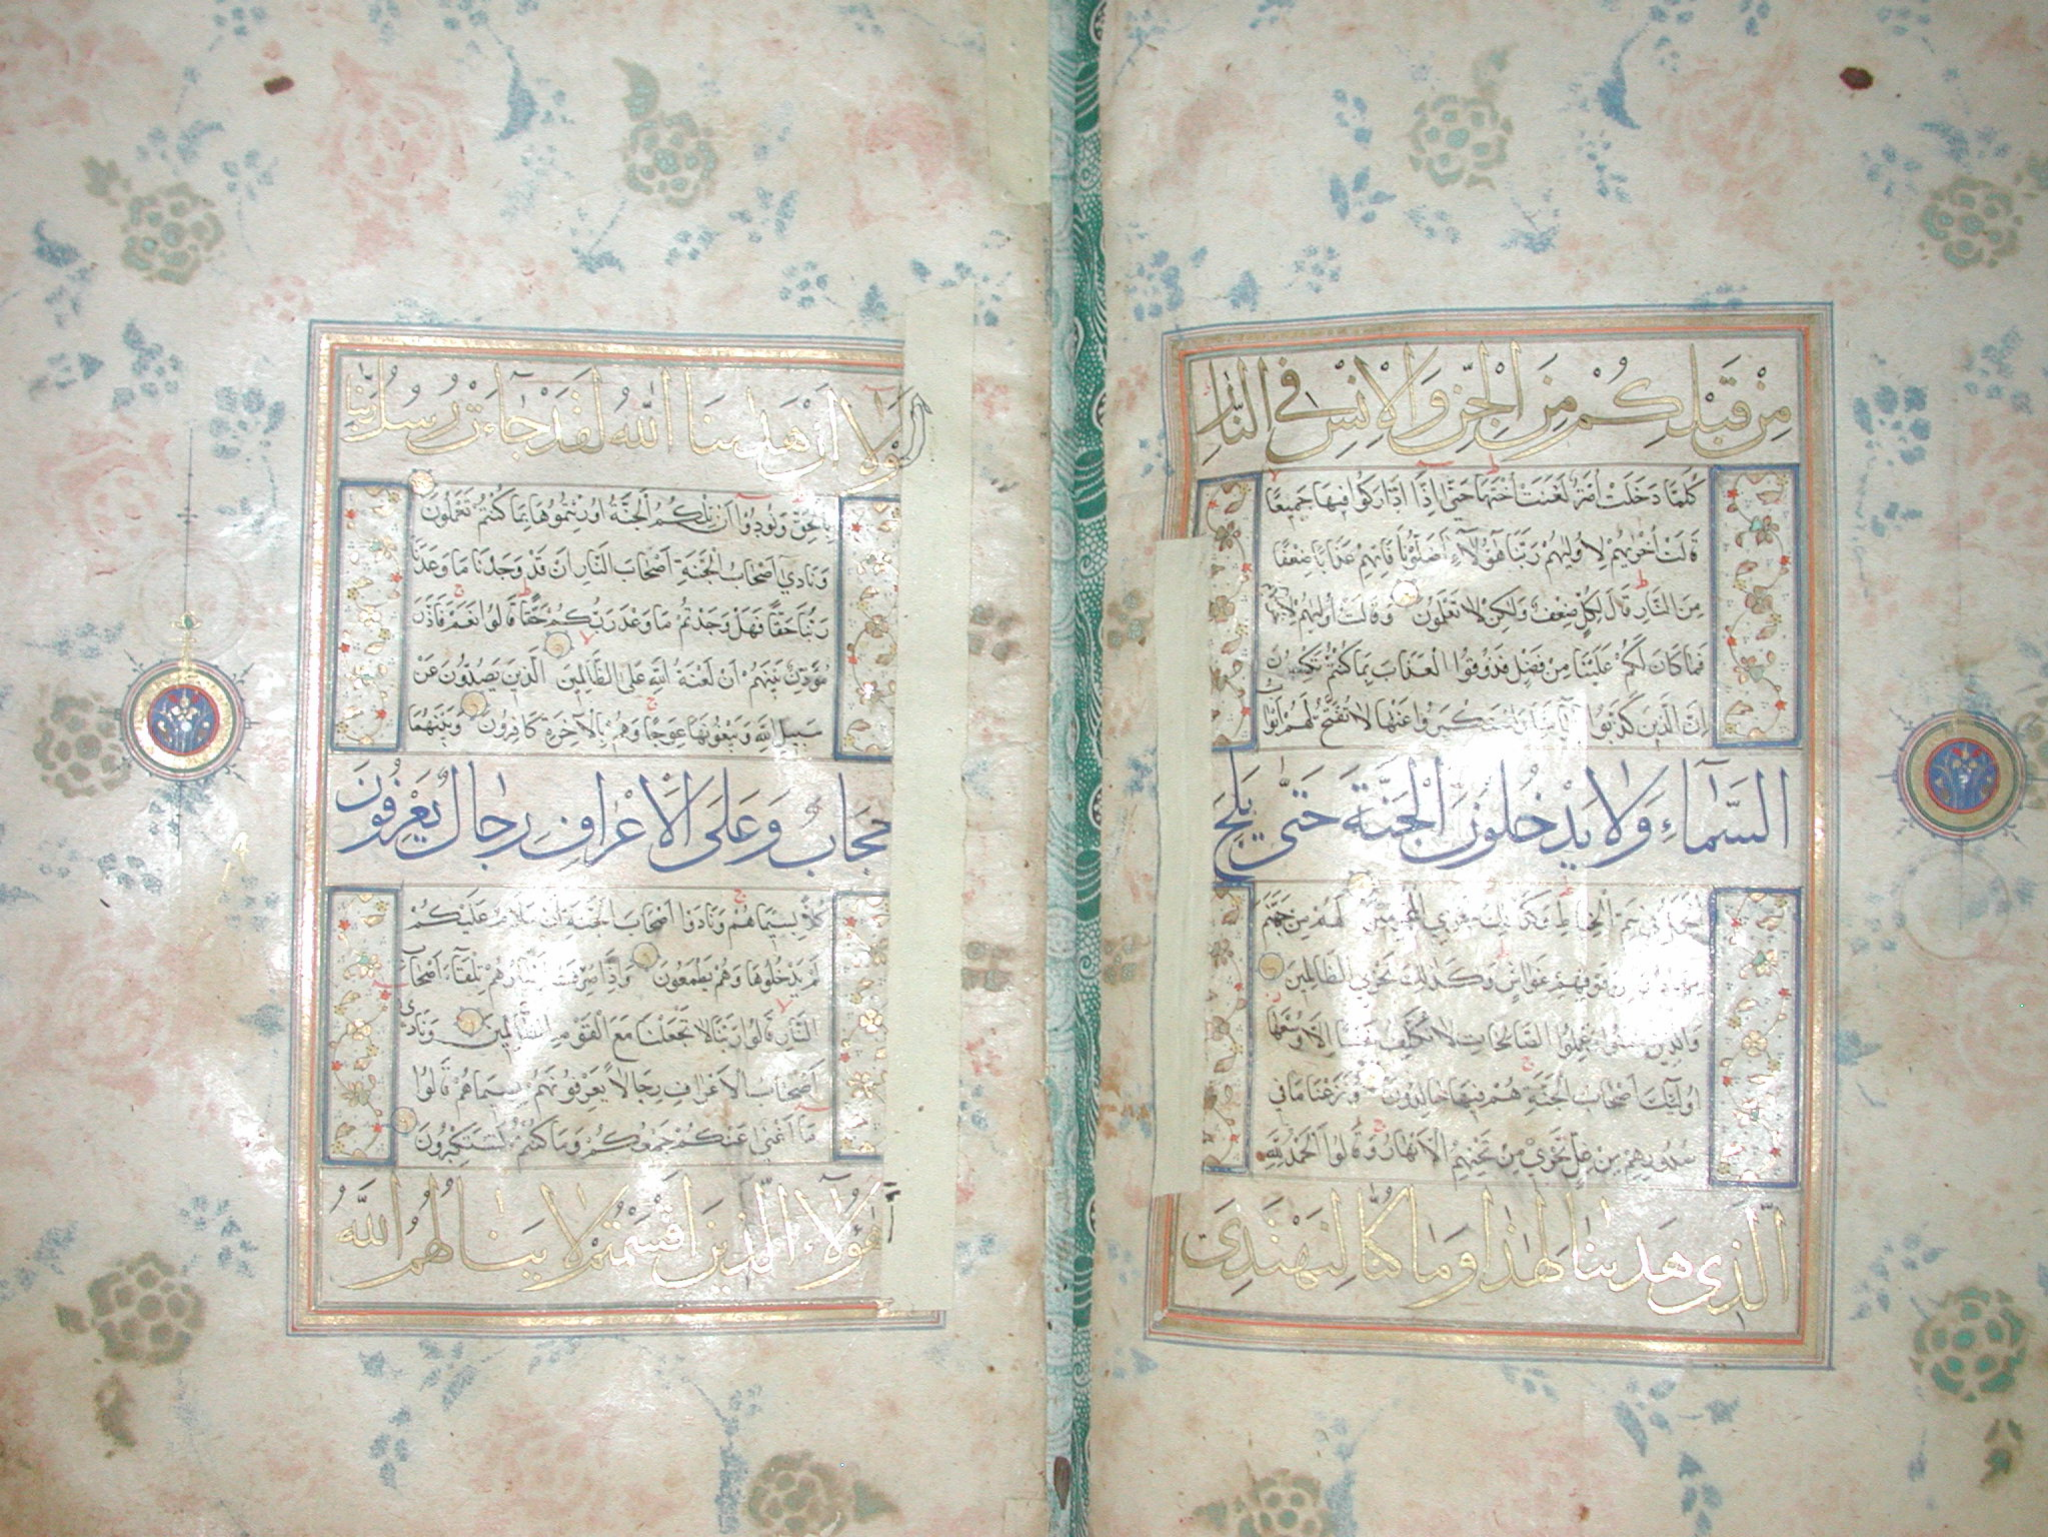 مِنْ قَبْلِكُمْ مِنَ الْجِنِّ وَالْاِنْسِ فِي النَّارِ
كُلَّمَا دَخَلَتْ اُمَّةٌ لَعَنَتْ اُخْتَهَا حَتّٰى اِذَا ادَّارَكُوا فِيهَا جَمِيعًا
قَالَتْ اُخْرٰيهُمْ لِاُولٰيهُمْ رَبَّنَا هٰؤُلَاءِ اَضَلُّونَا فَاٰتِهِمْ عَذَابًا ضِعْفًا
مِنَ النَّارِ قَالَ لِكُلٍّ ضِعْفٌ وَلٰكِنْ لَا تَعْلَمُونَ وَقَالَتْ اُولٰيهُمْ لِاُخْرٰيهُمْ
فَمَا كَانَ لَكُمْ عَلَيْنَا مِنْ فَضْلٍ فَذُوقُوا الْعَذَابَ بِمَا كُنْتُمْ تَكْسِبُونَ
اِنَّ الَّذِينَ كَذَّبُوا بِاٰيَاتِنَا وَاسْتَكْبَرُوا عَنْهَا لَا تُفَتَّحُ لَهُمْ اَبْوَابُ
السَّمَاءِ وَلَا يَدْخُلُونَ الْجَنَّةَ حَتّٰى يَلِجَ
الْجَمَلُ فِي سَمِّ الْخِيَاطِ وَكَذٰلِكَ نَجْزِي الْمُجْرِمِينَ لَهُمْ مِنْ جَهَنَّمَ
مِهَادٌ وَمِنْ فَوْقِهِمْ غَوَاشٍ وَكَذٰلِكَ نَجْزِي الظَّالِمِينَ
وَالَّذِينَ اٰمَنُوا وَعَمِلُوا الصَّالِحَاتِ لَا نُكَلِّفُ نَفْسًا اِلَّا وُسْعَهَا
اُولٰئِكَ اَصْحَابُ الْجَنَّةِ هُمْ فِيهَا خَالِدُونَ وَنَزَعْنَا مَا فِي
صُدُورِهِمْ مِنْ غِلٍّ تَجْرِي مِنْ تَحْتِهِمُ الْاَنْهَارُ وَقَالُوا الْحَمْدُ لِلّٰهِ
الَّذِي هَدٰينَا لِهٰذَا وَمَا كُنَّا لِنَهْتَدِيَ
لَوْلَا اَنْ هَدٰينَا اللّٰهُ لَقَدْ جَاءَتْ رُسُلُ رَبِّنَا
بِالْحَقِّ وَنُودُوا اَنْ تِلْكُمُ الْجَنَّةُ اُورِثْتُمُوهَا بِمَا كُنْتُمْ تَعْمَلُونَ
وَنَادٰى اَصْحَابُ الْجَنَّةِ اَصْحَابَ النَّارِ اَنْ قَدْ وَجَدْنَا مَا وَعَدَنَا
رَبُّنَا حَقًّا فَهَلْ وَجَدْتُمْ مَا وَعَدَ رَبُّكُمْ حَقًّا قَالُوا نَعَمْ فَاَذَّنَ
مُؤَذِّنٌ بَيْنَهُمْ اَنْ لَعْنَةُ اللّٰهِ عَلَى الظَّالِمِينَ الَّذِينَ يَصُدُّونَ عَنْ
سَبِيلِ اللّٰهِ وَيَبْغُونَهَا عِوَجًا وَهُمْ بِالْاٰخِرَةِ كَافِرُونَ وَبَيْنَهُمَا
حِجَابٌ وَعَلَى الْاَعْرَافِ رِجَالٌ يَعْرِفُونَ
كُلًّا بِسِيمَاهُمْ وَنَادَوْا اَصْحَابَ الْجَنَّةِ اَنْ سَلَامٌ عَلَيْكُمْ
لَمْ يَدْخُلُوهَا وَهُمْ يَطْمَعُونَ وَاِذَا صُرِفَتْ اَبْصَارُهُمْ تِلْقَاءَ اَصْحَابِ
النَّارِ قَالُوا رَبَّنَا لَا تَجْعَلْنَا مَعَ الْقَوْمِ الظَّالِمِينَ وَنَادٰى
اَصْحَابُ الْاَعْرَافِ رِجَالًا يَعْرِفُونَهُمْ بِسِيمَاهُمْ قَالُوا
مَا اَغْنٰى عَنْكُمْ جَمْعُكُمْ وَمَا كُنْتُمْ تَسْتَكْبِرُونَ
هٰؤُلَاءِ الَّذِينَ اَقْسَمْتُمْ لَا يَنَالُهُمُ اللّٰهُ